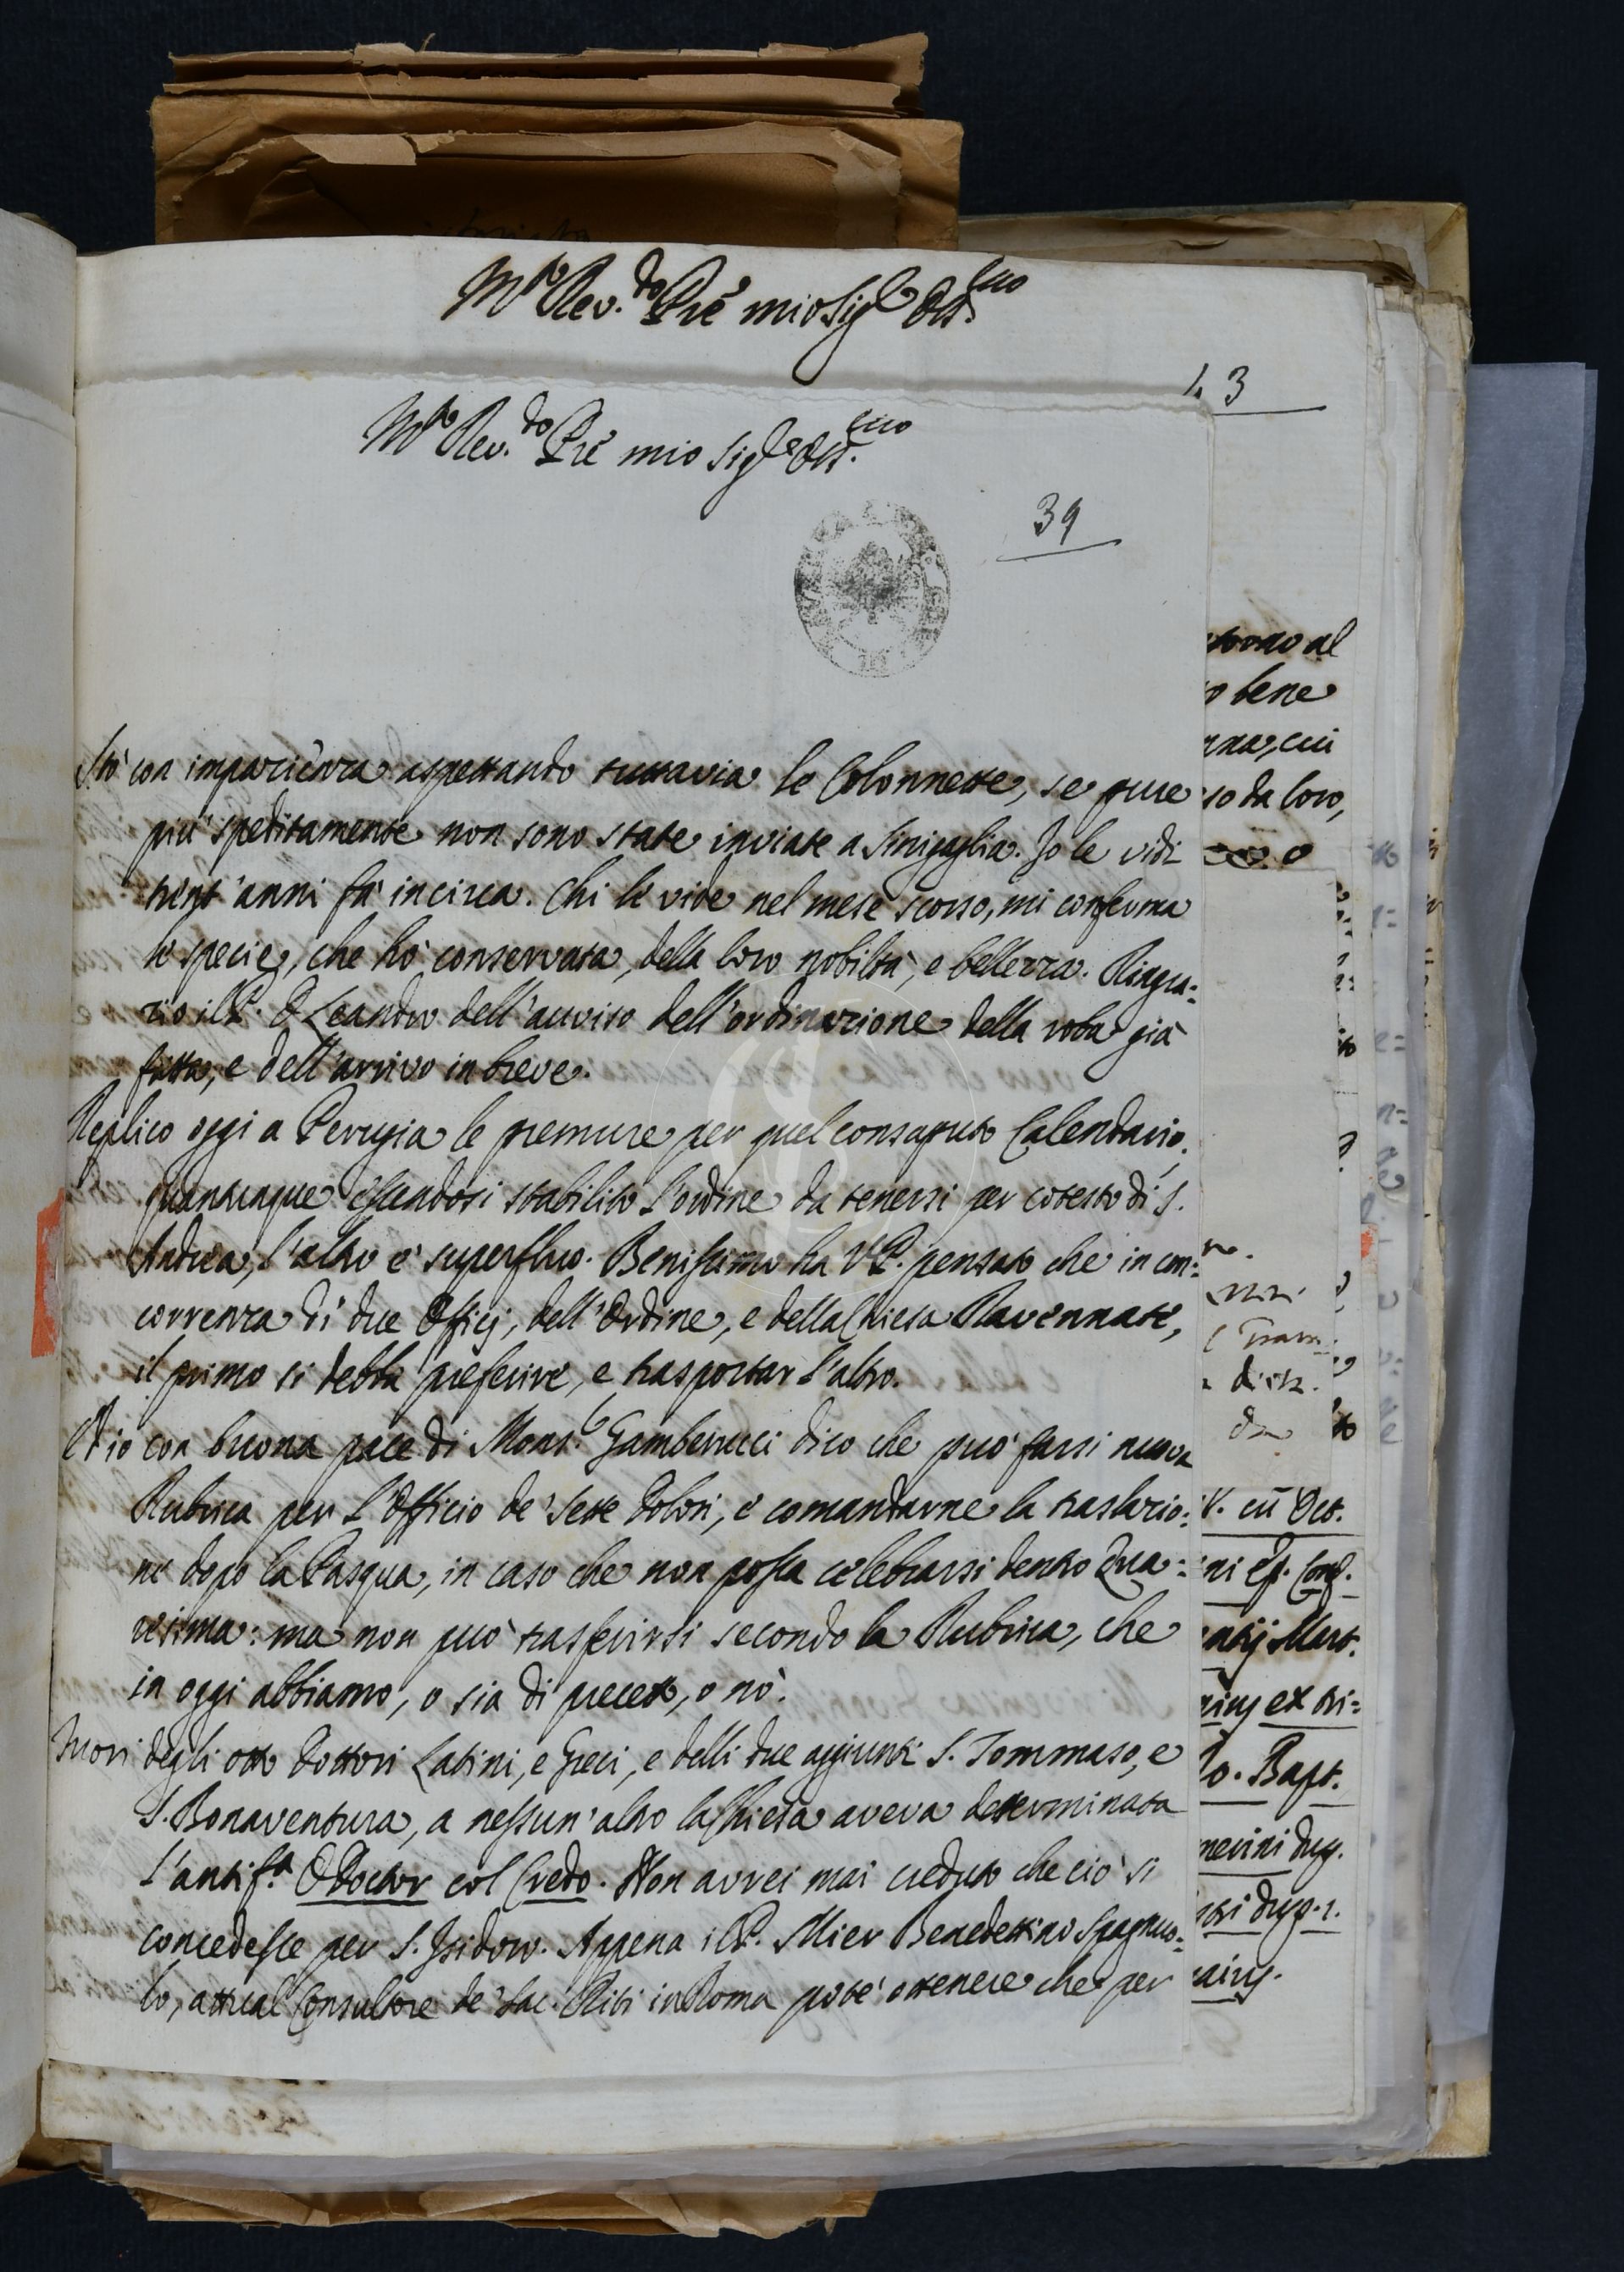 M.to Rev.do P're mio Sig.e Oss.mo
43
M.to Rev.do P're mio Sig.e Oss.mo
39
Stò con impazienza aspettando tuttavia le Colonnette, se pure
più speditamente non sono state inviate a Sinigaglia. Io le vidi
trent'anni fà incirca. Chi le vide nel mese scorso, mi conferma
le specie, che hò conservata, della loro nobiltà, e bellezza. Ringra:
zio il P. D. Leandro dell'avviso dell'ordinazione della roba già
fatta, e dell'arrivo in breve.
Replico oggi a Perugia le premure per quel consaputo Calendario,
quantunque essendosi stabilito l'ordine da tenersi per cotesto di S.
Andrea, l'altro è superfluo. Benissimo ha V.P. pensato che in con:
correnza di due Officj, dell'Ordine, e della Chiesa Ravennate,
il primo si debba preferire, e trasportar l'altro.
Ed io con buona pace di Mons.r Gamberucci dico che può farsi nuova
Rubrica per l'Officio de' Sette Dolori, e comandarne la traslazio:
ne dopo la Pasqua, in caso che non possa celebrarsi dentro Qua:
resima: ma non può trasferirsi secondo la Rubrica, che
in oggi abbiamo, o sia di precetto, o nò.
Fuori degli otto Dottori Latini, e Greci, e delli due aggiunti S. Tommaso, e
S. Bonaventura, a nessun'altro la Chiesa aveva determinata
l'antif.a O Doctor col Credo. Non avrei mai creduto che ciò si
concedesse per S. Isidoro. Appena il P. Mier Benedettino Spagnuo:
lo, attual Consultore de' Sac. Riti in Roma potè ottenere che per
torno al
bene
cui
so da loro,
V. cũ Oct.
ni Ep. Conf.
Mart.
ex tri=
Io. Bapt.
dup.
dup. 2.